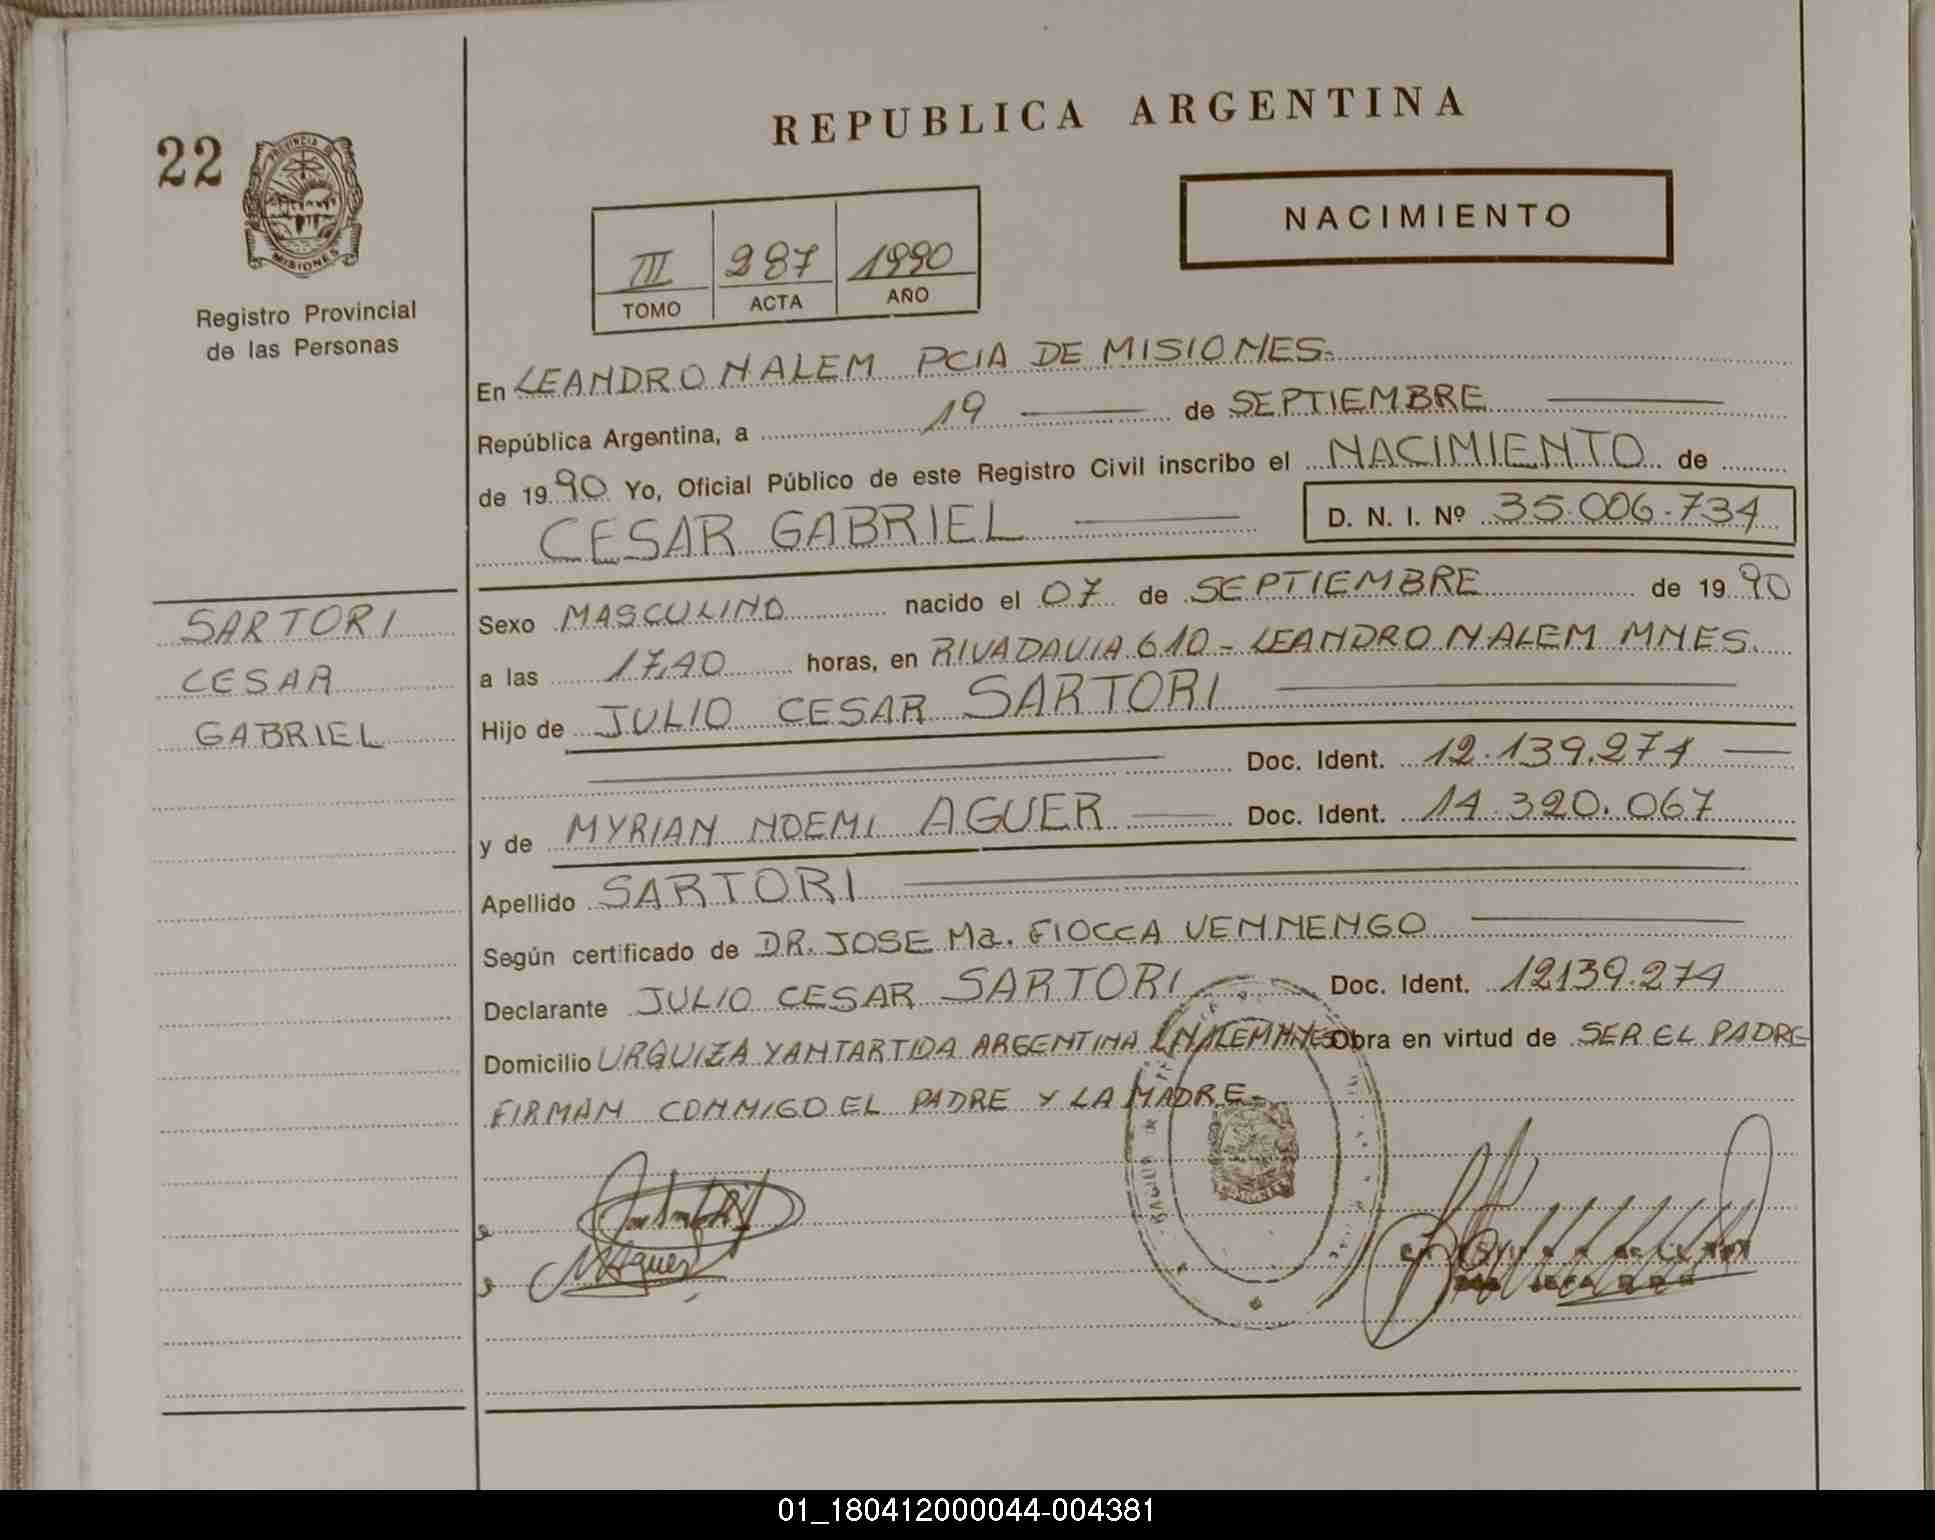 REPUBLICA ARGENTINA
22
PROVINCIA DE
MISIONES
Registro Provincial
de las Personas
NACIMIENTO
III 287 1990
TOMO ACTA AÑO
En LEANDRO N ALEM PCIA DE MISIONES.
República Argentina, a 19 de SEPTIEMBRE
de 1990 Yo, Oficial Público de este Registro Civil inscribo el NACIMIENTO de
CESAR GABRIEL D. N. I. Nº 35.006.734
SARTORI
CESAR
GABRIEL
Sexo MASCULINO nacido el 07 de SEPTIEMBRE de 1990
a las 17,40 horas, en RIVADAVIA 610 - LEANDRO N. ALEM MNES.
Hijo de JULIO CESAR SARTORI
Doc. Ident. 12.139.274
y de MYRIAN NOEMI AGUER Doc. Ident. 14.320.067
Apellido SARTORI
Según certificado de DR. JOSE Ma. FIOCCA VENNENGO
Declarante JULIO CESAR SARTORI Doc. Ident. 12139.274
Domicilio URQUIZA Y ANTARTIDA ARGENTINA LNALEM MNES Obra en virtud de SER EL PADRE
FIRMAN CONMIGO EL PADRE Y LA MADRE-
01_180412000044-004381